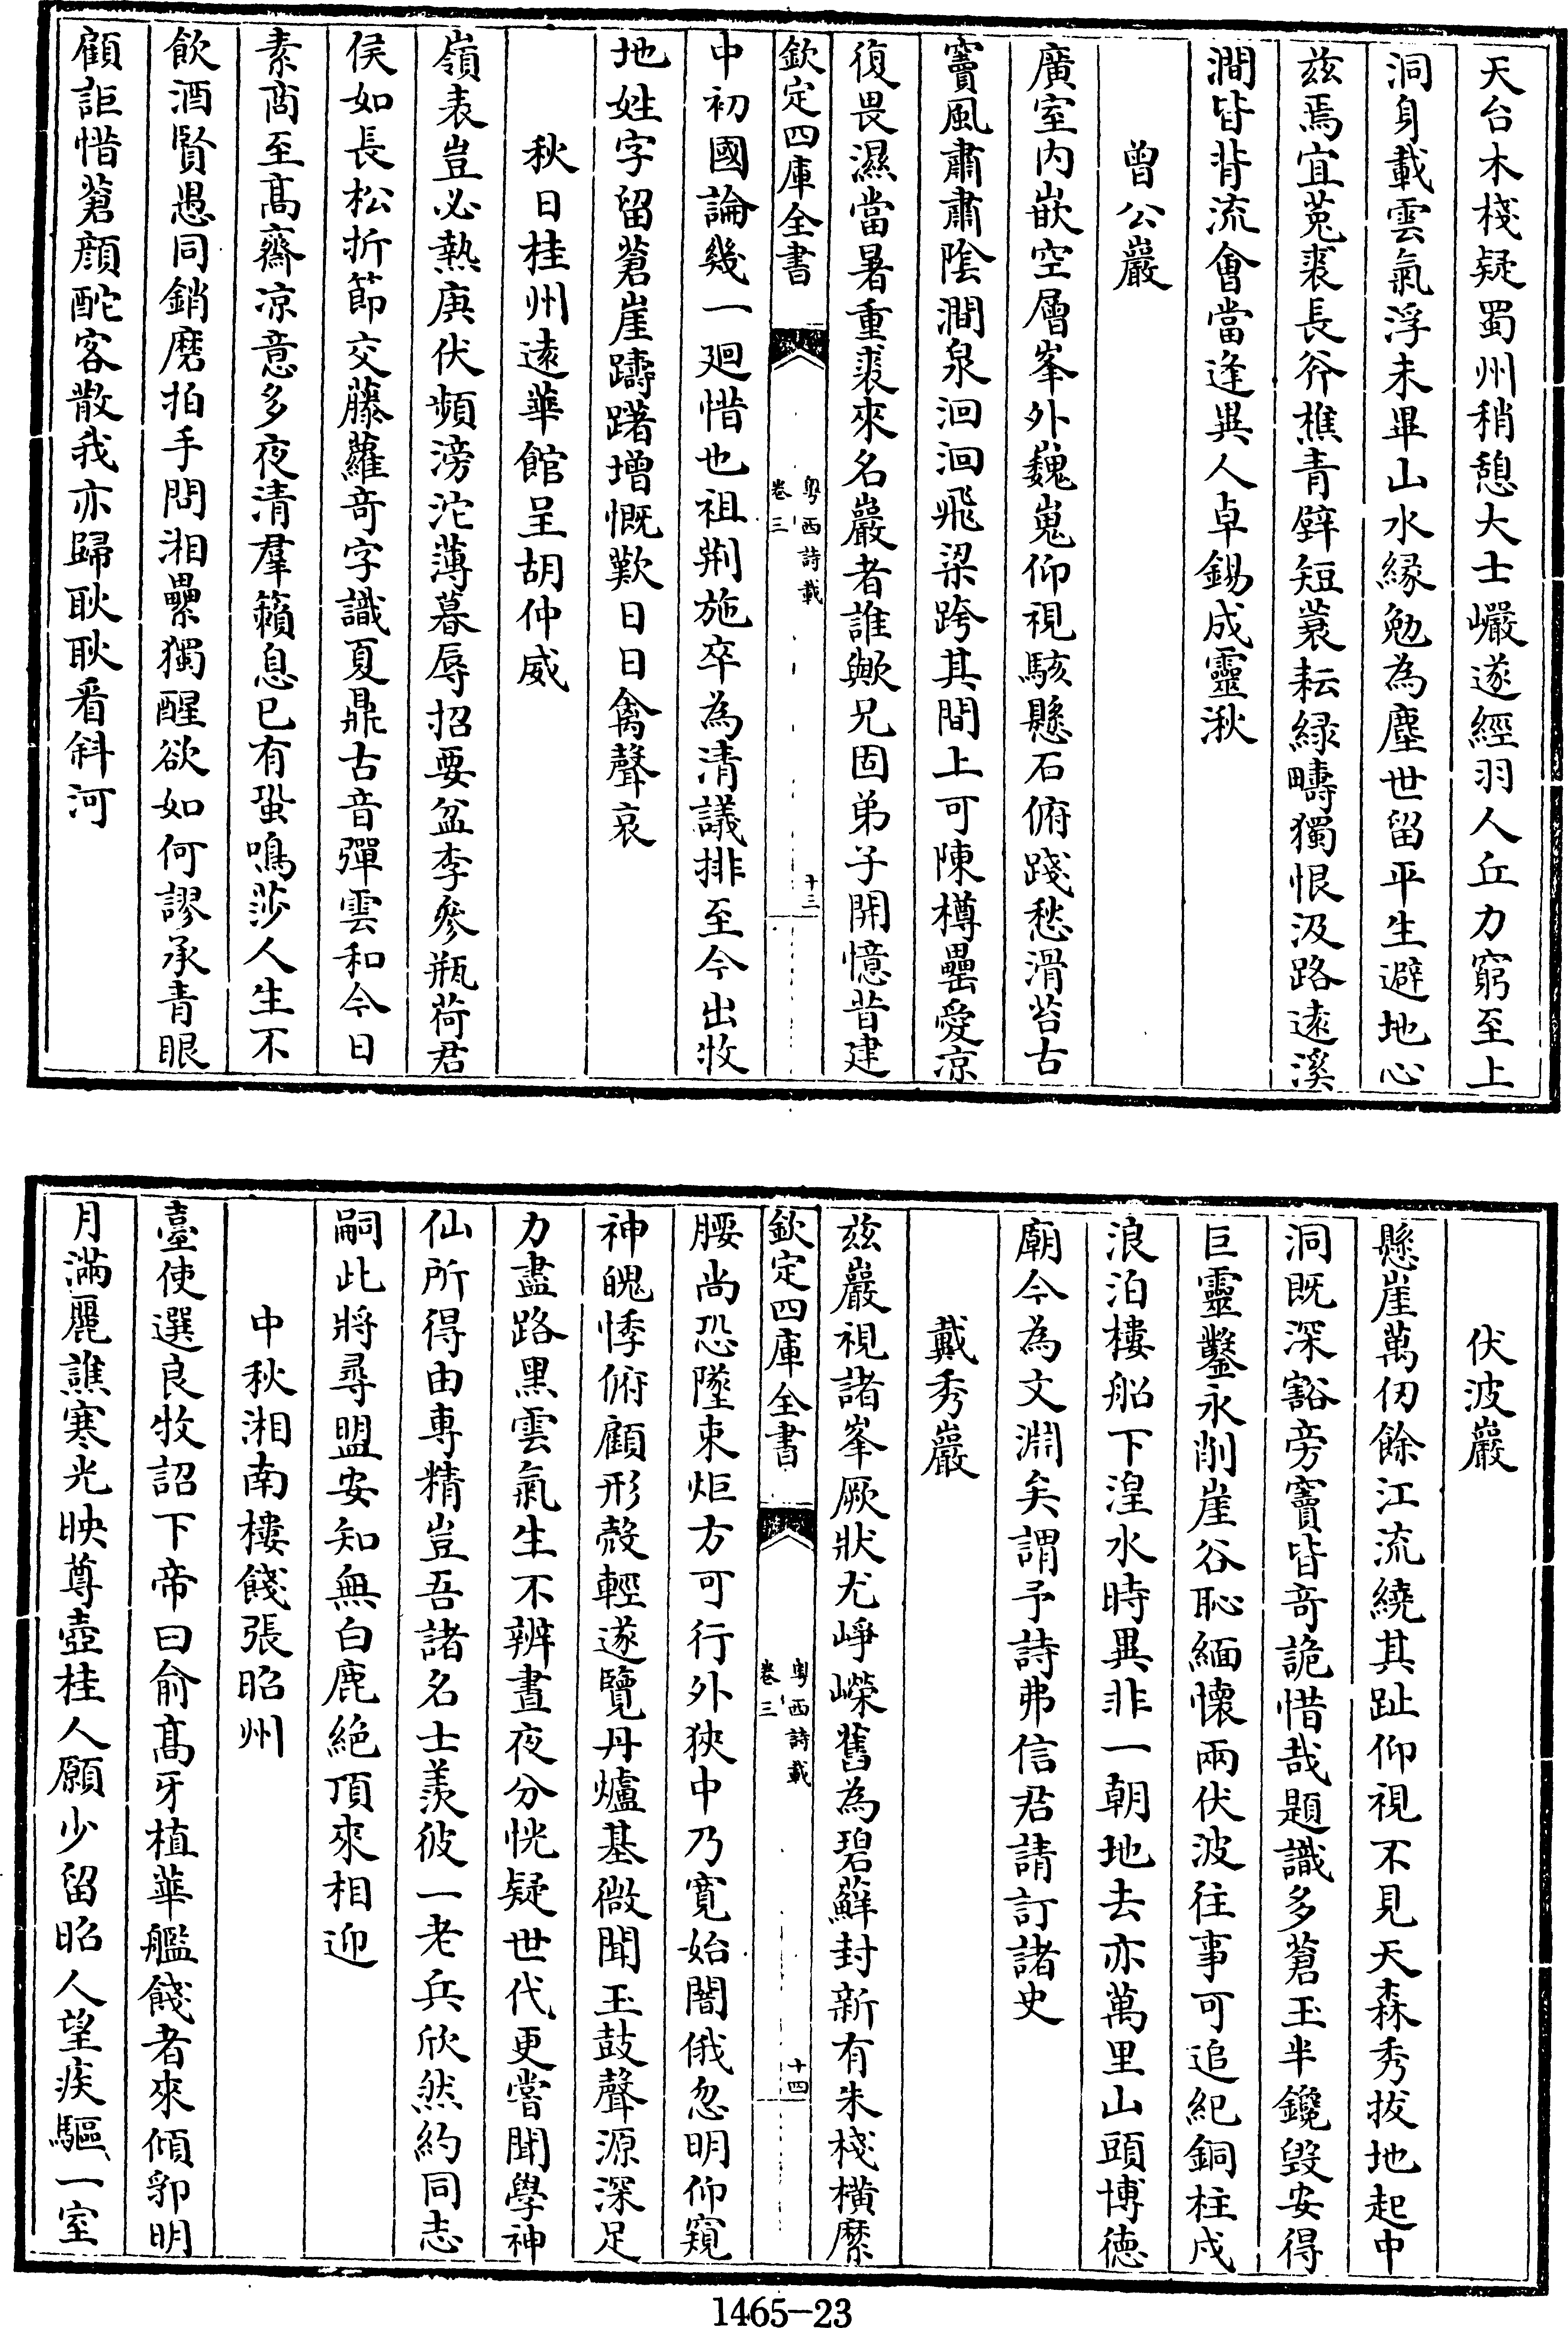 天台木棧疑蜀州稍憩大士巖遂經羽人丘力窮至上
洞身載雲氣浮未畢山水緣勉為塵世留平生避地心
兹焉宜菟裘長斧樵青辥短蓑耘緑疇獨恨汲路逺溪
澗皆背流會當逢異人卓錫成靈湫
曾公巖
廣室内嵌空層峯外巍嵬仰視駭懸石俯踐愁滑苔古
竇風肅肅陰澗泉洄洄飛梁跨其間上可陳樽罍愛凉
復畏濕當暑重裘來名巖者誰歟兄固弟子開憶昔建
欽定四庫全書
粤西詩載
卷三
十三
中初國論幾一廻惜也祖荆施卒為清議排至今出牧
地姓字留蒼崖躊躇增慨歎日日禽聲哀
秋日桂州逺華館呈胡仲威
嶺表豈必熱庚伏頻滂沱薄暮辱招要盆李參瓶荷君
侯如長松折節交藤蘿竒字識夏鼎古音彈雲和今日
素商至髙齋凉意多夜清羣籟息已有蛩鳴莎人生不
飲酒賢愚同銷磨拍手問湘纍獨醒欲如何謬承青眼
顧詎惜蒼顔酡客散我亦歸耿耿看斜河
伏波巖
懸崖萬仞餘江流繞其趾仰視不見天森秀拔地起中
洞既深豁旁竇皆竒詭惜哉題識多蒼玉半鑱毁安得
巨靈鑿永削崖谷恥緬懷兩伏波往事可追紀銅柱戍
浪泊樓船下湟水時異非一朝地去亦萬里山頭博徳
廟今為文淵矣謂予詩弗信君請訂諸史
戴秀巖
兹巖視諸峯厥狀尤崢嶸舊為碧蘚封新有朱棧横縻
欽定四庫全書
粤西詩載
卷三
十四
腰尚恐墜束炬方可行外狹中乃寛始闇俄忽明仰窺
神魄悸俯顧形殻輕遂覽丹爐基微聞玉鼓聲源深足
力盡路黒雲氣生不辨晝夜分恍疑世代更嘗聞學神
仙所得由專精豈吾諸名士羨彼一老兵欣然約同志
嗣此將尋盟安知無白鹿絶頂來相迎
中秋湘南樓餞張昭州
臺使選良牧詔下帝曰俞髙牙植華艦餞者來傾郛明
月滿麗譙寒光映尊壺桂人願少留昭人望疾驅一室
1465-23